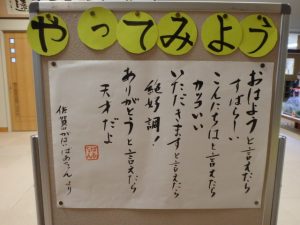 やってみよう
おはようと言えたら
すばらしい
こんにちはと言えたら
かっこいい
いただきますと言えたら
絶好調！
ありがとうと言えたら
天才だよ
佐賀のがばいばあちゃんより